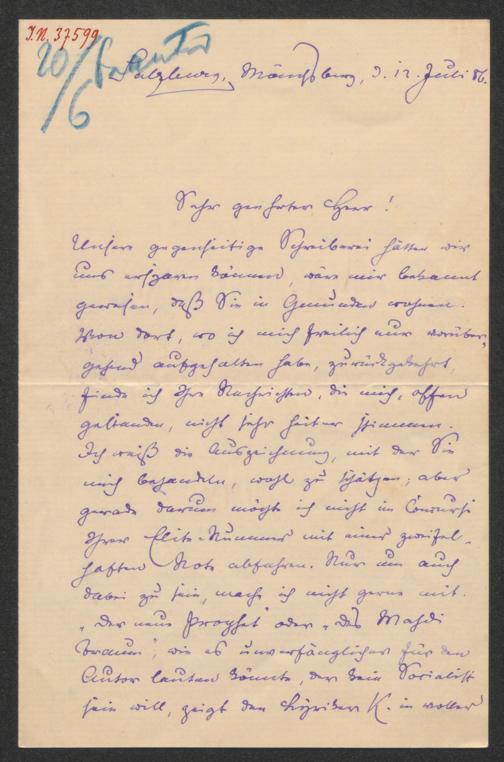 I.N. 37599
20/6
Salzburg, Mönchsberg, d. 12. Juli 86.
Sehr geehrter Herr!
Unsere gegenseitige Schreiberei hätten wir
uns ersparen können, wäre mir bekannt
gewesen, daß Sie in Gmunden wohnen.
Von dort, wo ich mich freilich nur vorüber-
gehend aufgehalten habe, zurückgekehrt,
finde ich Ihre Nachrichten, die mich, offen
gestanden, nicht sehr heiter stimmen.
Ich weiß die Auszeichnung, mit der Sie
mich behandeln, wohl zu schätzen; aber
gerade darum möchte ich nicht im Concurse
Ihrer Elite-Nummer mit einer zweifel-
haften Note abfahren. Nur um auch
dabei zu sein, mache ich nicht gerne mit.
„Der neue Prophet" oder „Des Mahdi
Traum", wie es unverfänglicher für den
Autor lauten könnte, der kein Socialist
sein will, zeigt den Lyriker K. in voller